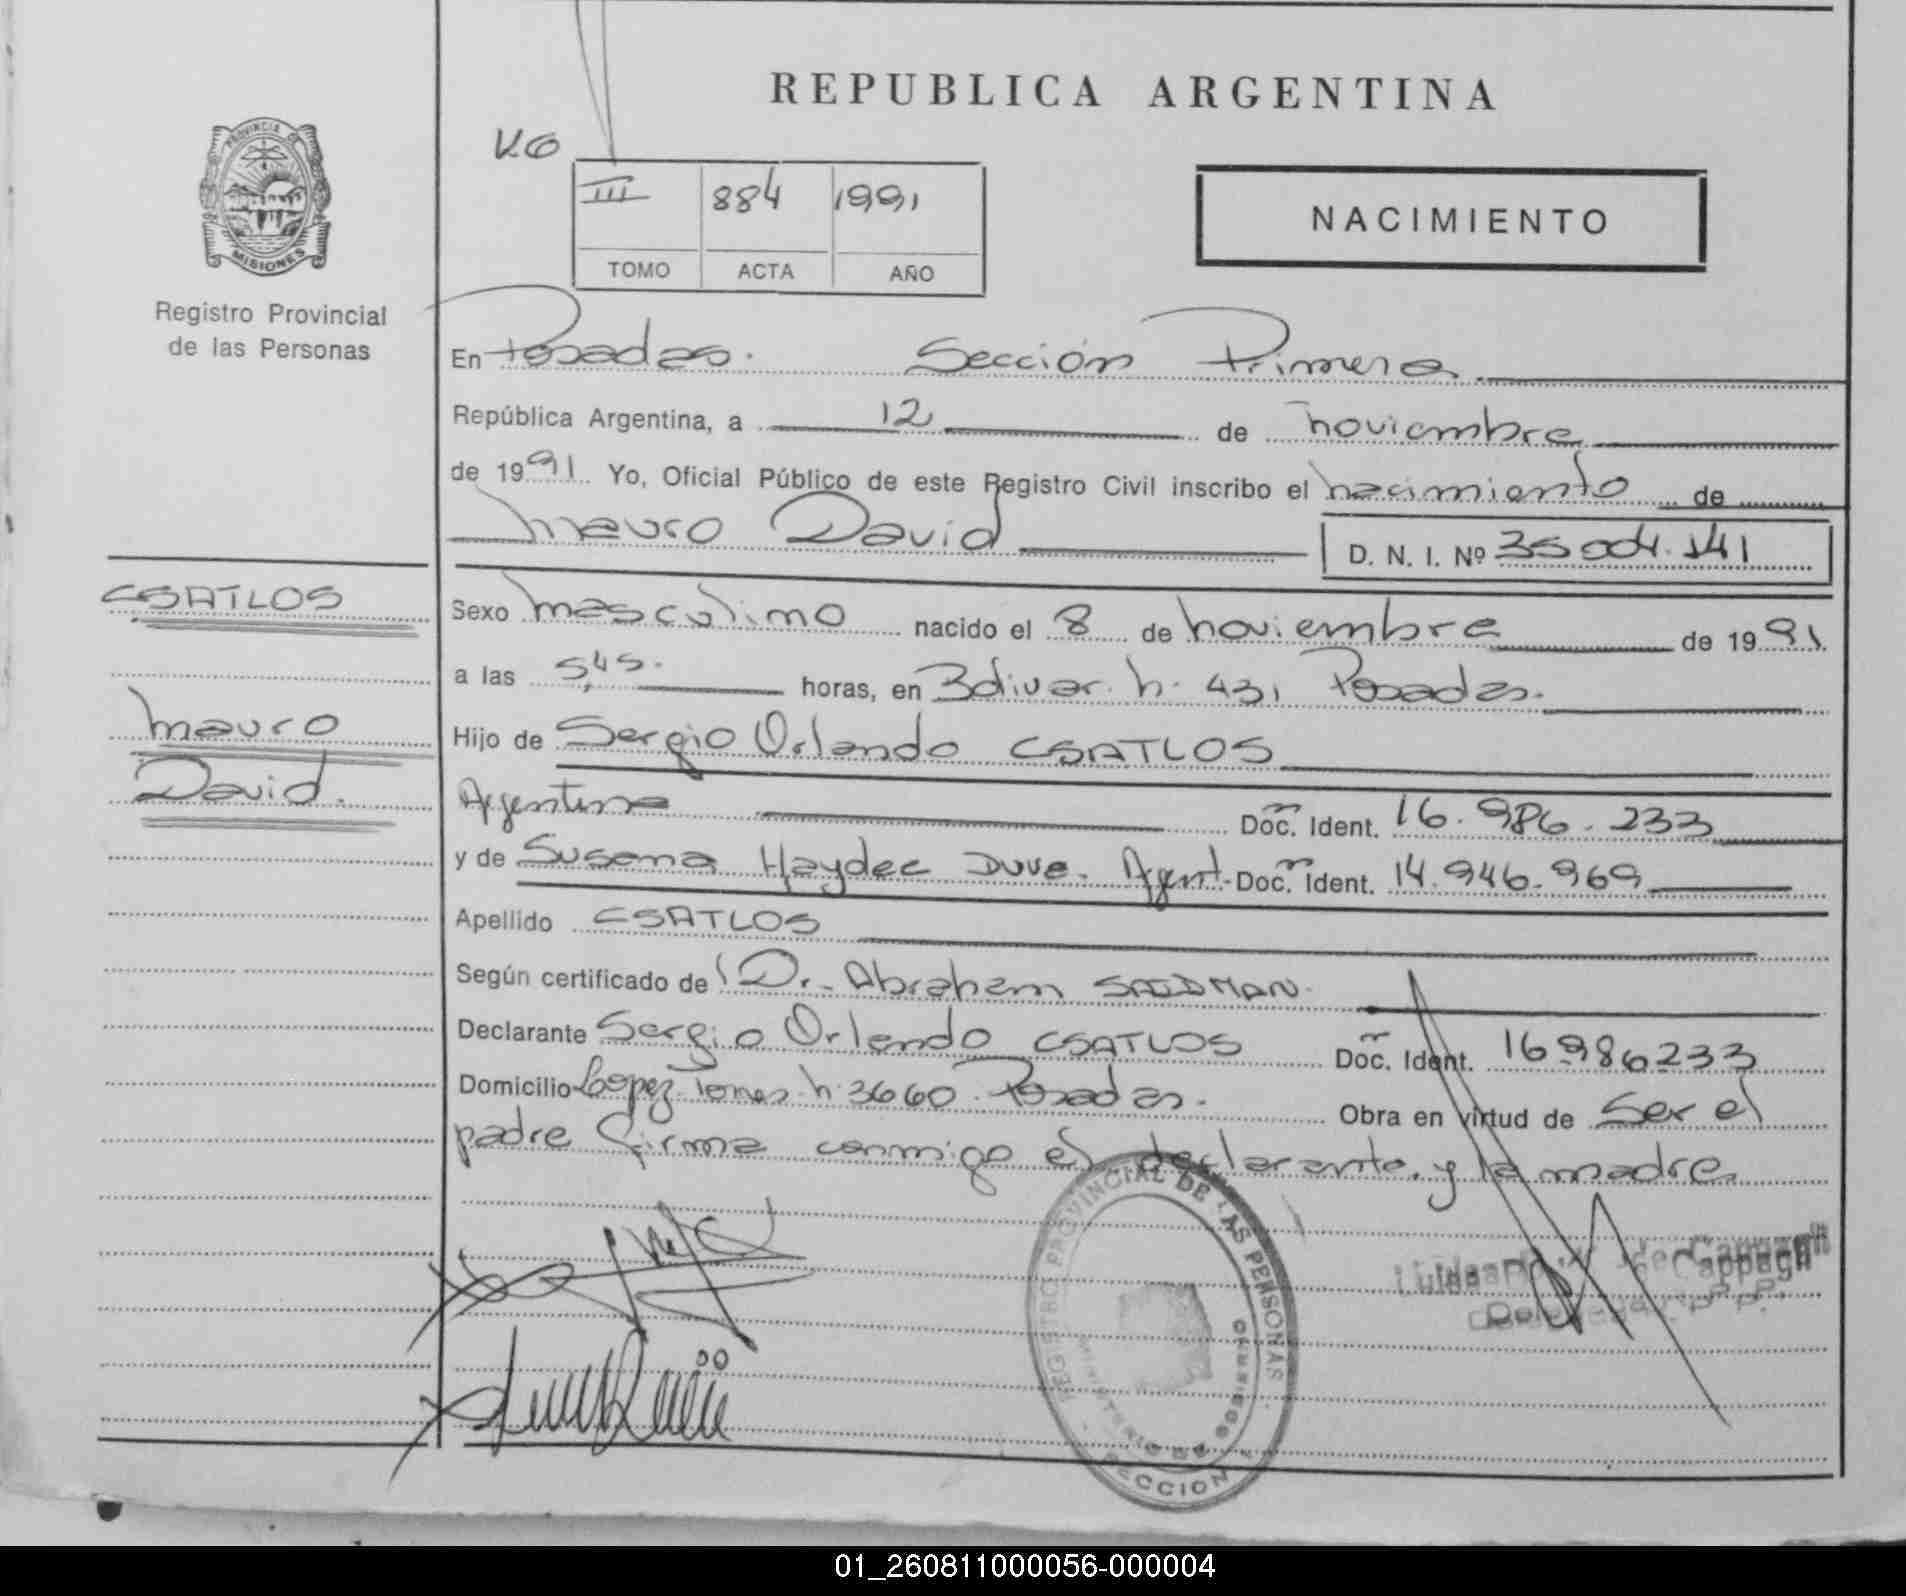 REPUBLICA ARGENTINA
PROVINCIA DE
MISIONES
Registro Provincial
de las Personas
III 884 1991
TOMO ACTA AÑO
NACIMIENTO
En Posadas. Sección Primera
República Argentina, a 12 de noviembre
de 1991. Yo, Oficial Público de este Registro Civil inscribo el nacimiento de
Mauro David D. N. I. Nº 35.004.141
CSATLOS
Mauro
David.
Sexo masculino nacido el 8 de noviembre de 1991
a las 5,45. horas, en Bolivar. n. 431 Posadas.
Hijo de Sergio Orlando CSATLOS
Argentino Doc. Ident. 16.986.233
y de Susana Haydee DUVE. Argent. Doc. Ident. 14.946.969
Apellido CSATLOS
Según certificado de Dr. Abraham SAIDMAN.
Declarante Sergio Orlando CSATLOS Doc. Ident. 16986233
Domicilio Lopez Torres n. 3660. Posadas. Obra en virtud de Ser el
padre firma conmigo el declarante. y la madre.
REGISTRO PROVINCIAL DE LAS PERSONAS
MINISTERIO DE GOBIERNO
SECCION
01_260811000056-000004